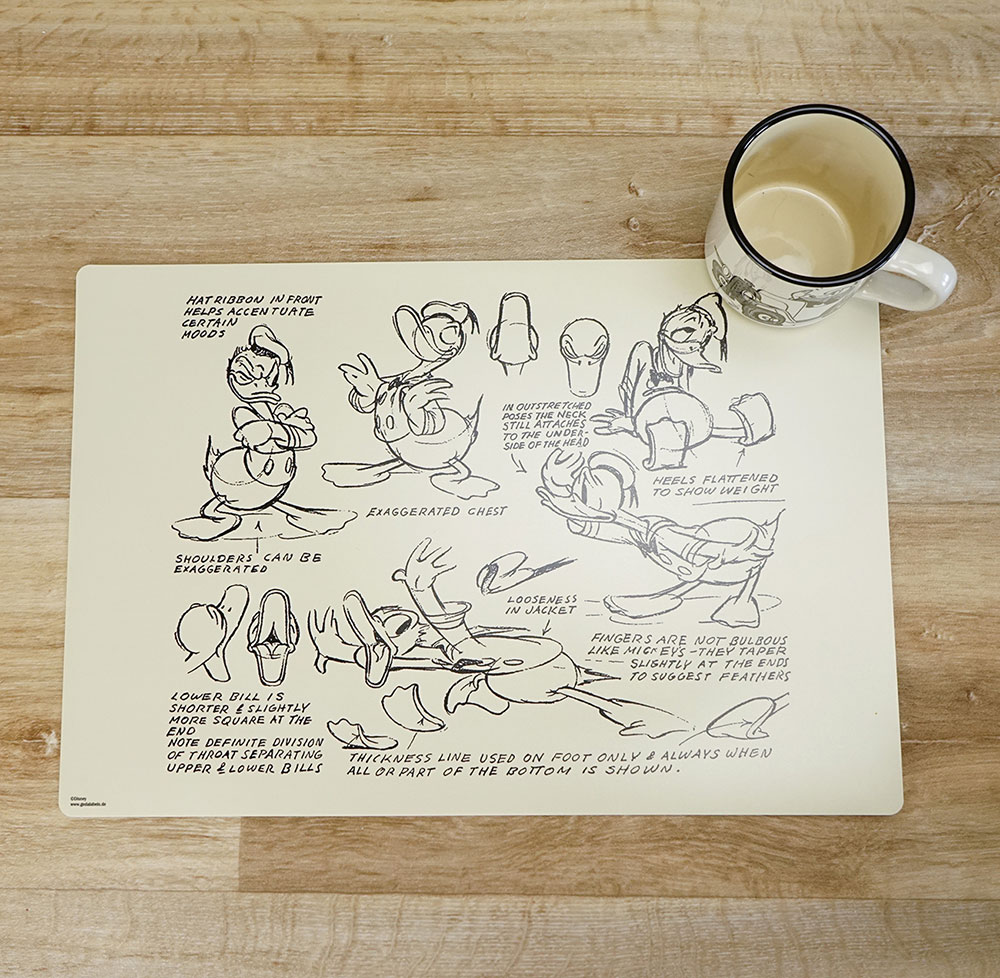 HATRIBBON IN FRONT
HELPS ACCENTUATE
CERTAIN
MOODS
IN OUTSTRETCHED
POSES THE NECK
STILL ATTACHES
TO THE UNDER-
SIDE OF THE HEAD
HEELS FLATTENED
TO SHOW WEIGHT
EXAGGERATED CHEST
SHOULDERS CAN BE
EXAGGERATED
LOOSENESS
IN JACKET
FINGERS ARE NOT BULBOUS
LIKE MICKEY'S - THEY TAPER
SLIGHTLY AT THE ENDS
TO SUGGEST FEATHERS
LOWER BILL IS
SHORTER & SLIGHTLY
MORE SQUARE AT THE
END
NOTE DEFINITE DIVISION
OF THROAT SEPARATING
UPPER & LOWER BILLS
THICKNESS LINE USED ON FOOT ONLY & ALWAYS WHEN
ALL OR PART OF THE BOTTOM IS SHOWN.
©Disney